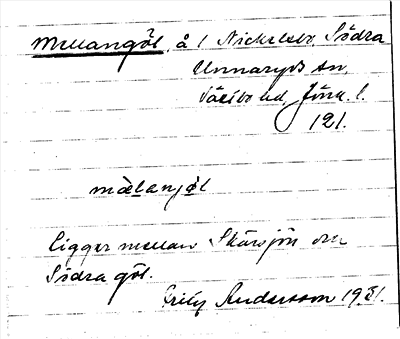 Mellangöl, å 1 Nickelsbo, Södra
Unnaryds sn,
Västbo hd, Jönk. l.
121.
mälanjöl
ligger mellan Skärsjön och
Södra göl.
Andersson 1931.